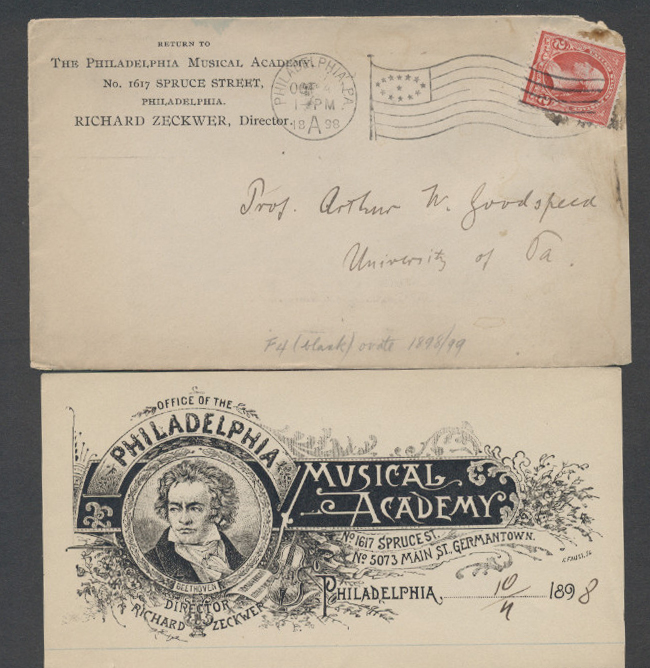 RETURN TO
THE PHILADELPHIA MUSICAL ACADEMY,
No. 1617 SPRUCE STREET,
PHILADELPHIA.
RICHARD ZECKWER, Director.
PHILADELPHIA, PA.
OCT 4
1 PM
1898
A
Prof. Arthur W. Goodspeed
University of Pa.
F4 (black) 1898/99
OFFICE OF THE
PHILADELPHIA
MUSICAL
ACADEMY
No 1617 SPRUCE ST.
No 5073 MAIN ST. GERMANTOWN.
BEETHOVEN
DIRECTOR
RICHARD ZECKWER
PHILADELPHIA, 10/4 1898